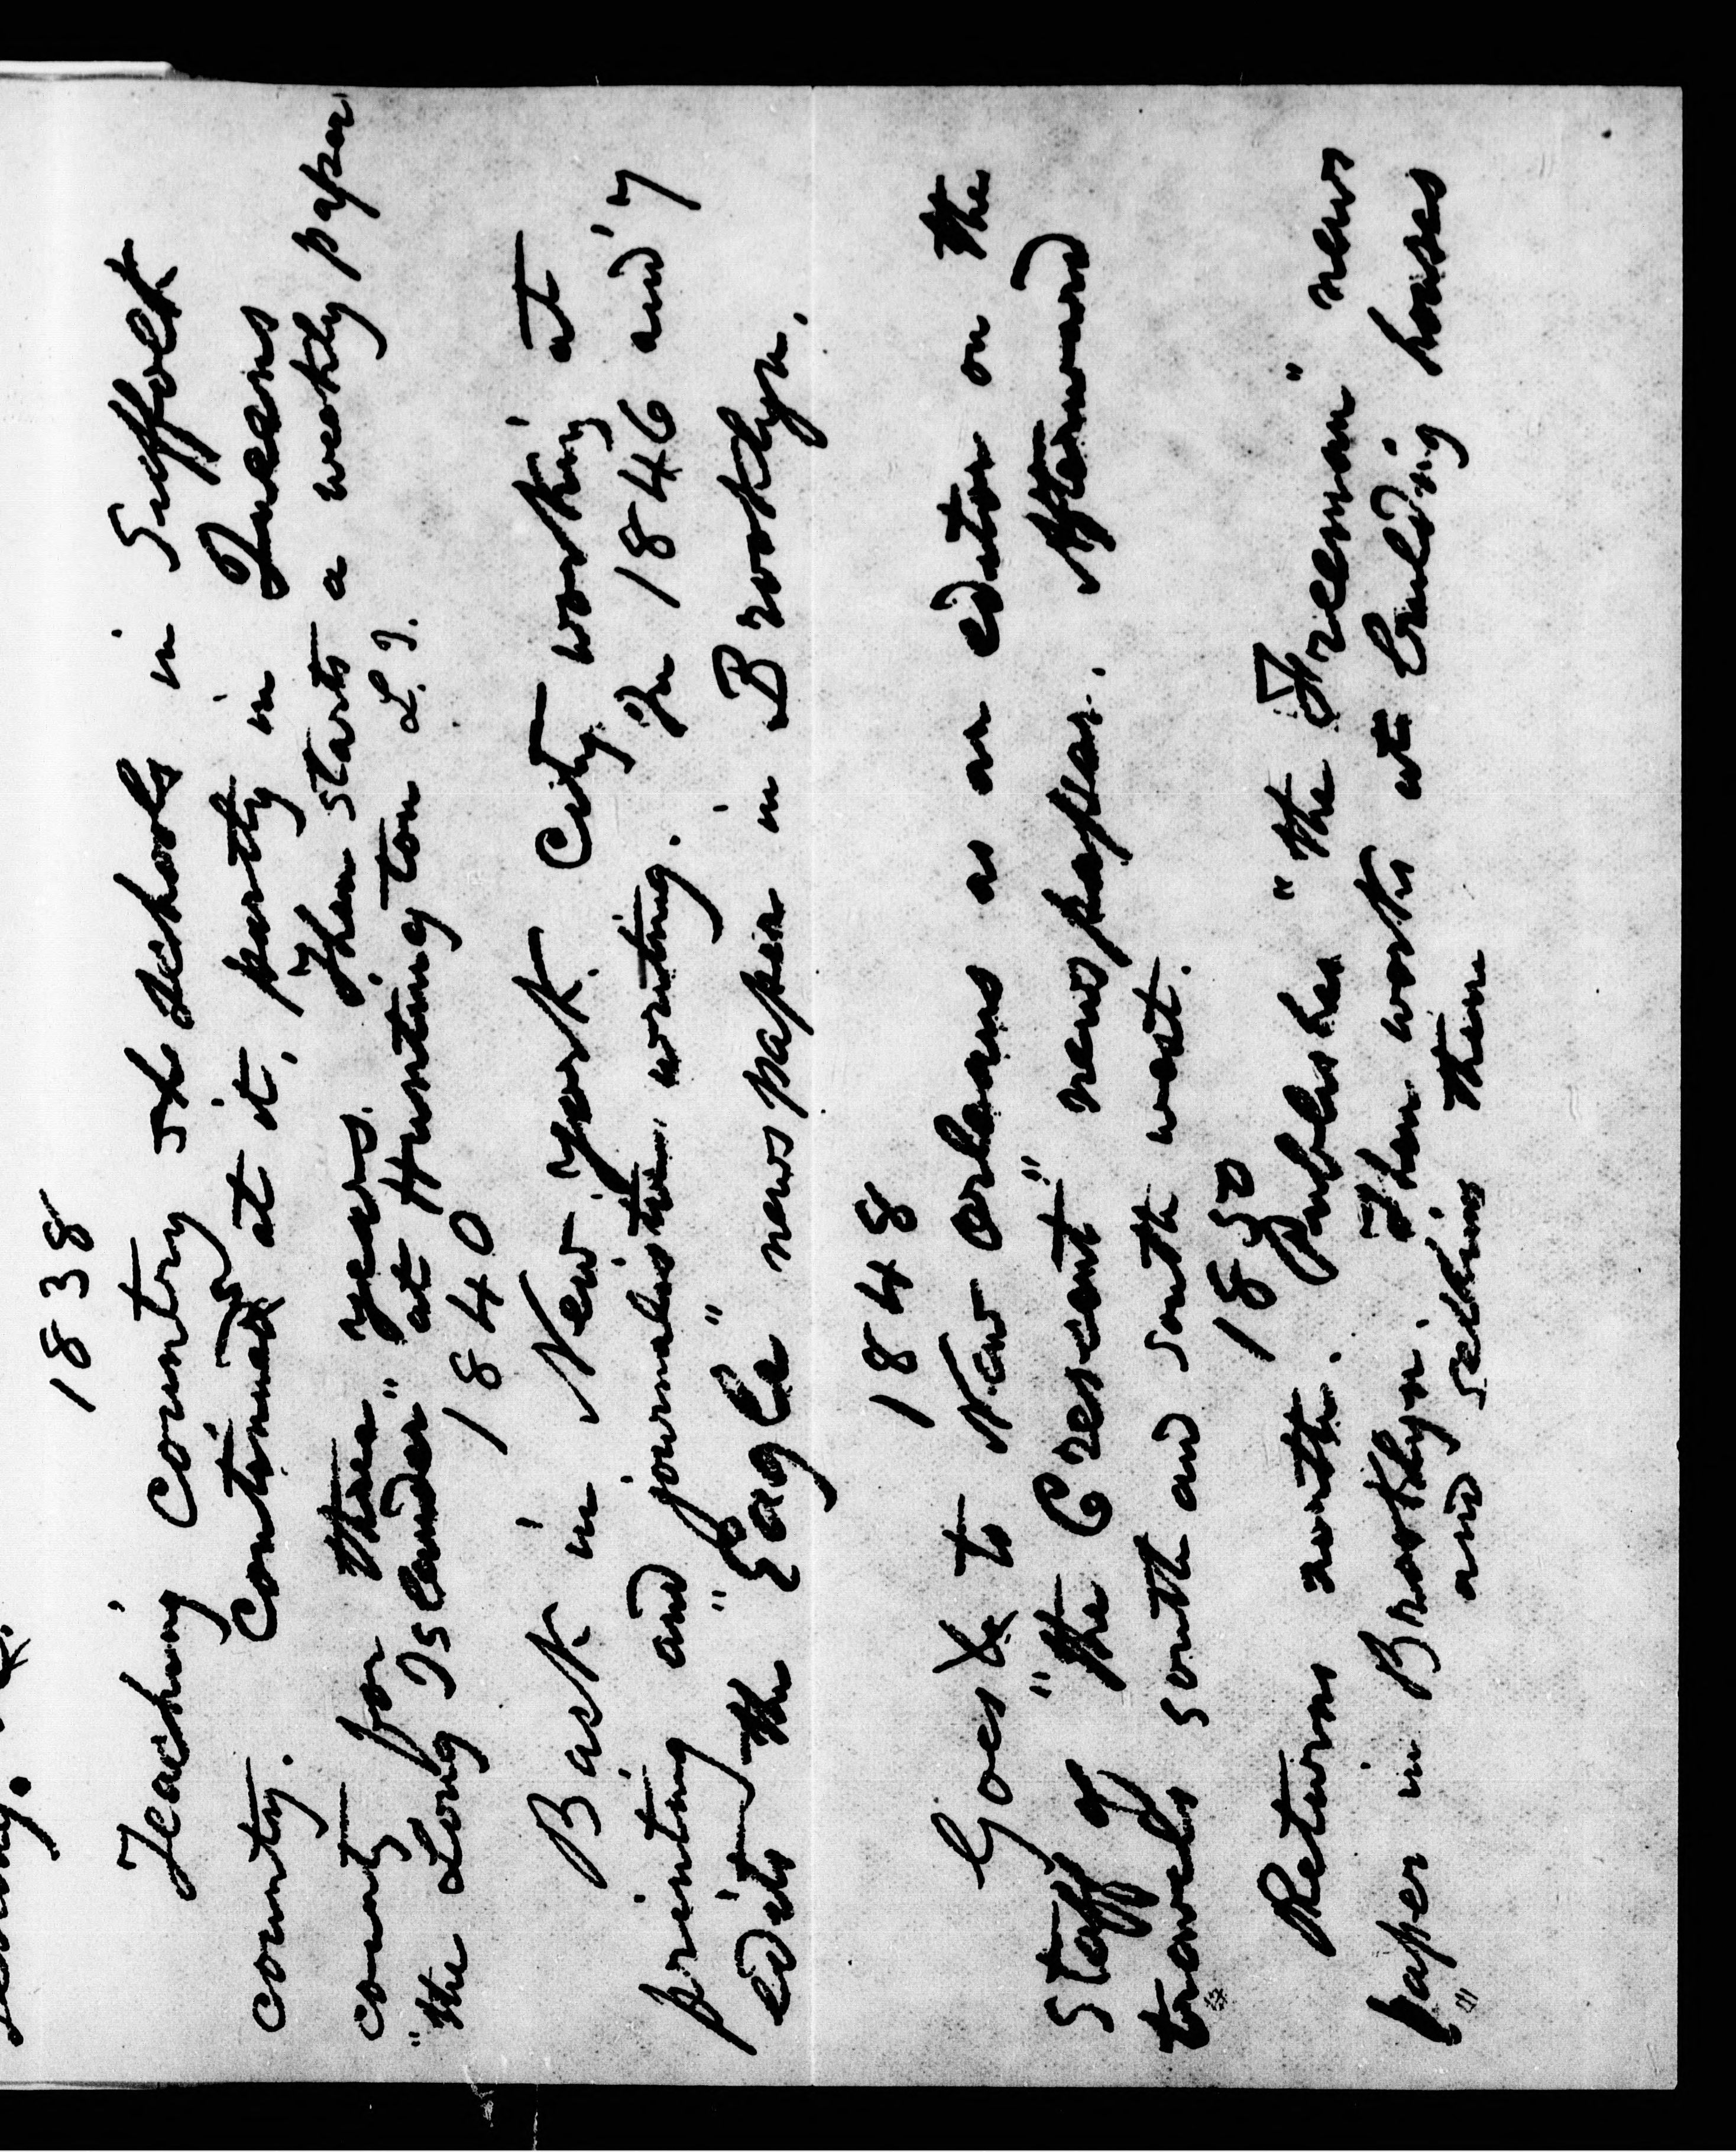 1838
Teaching country schools in Suffolk
county. Continued at it, partly in Queens
county for three years. Then starts a weekly paper
"the Long Islander" at Huntington L.I.
1840
Back in New York City working at
printing and journalistic writing. In 1846 and '7
edits the "Eagle" newspaper in Brooklyn.
1848
Goes to New Orleans as an editor on the
staff of "the Crescent" newspaper. Afterward
travels south and south west.
1850
Returns north. Publishes "the Freeman" news
paper in Brooklyn. Then works at building houses
and selling them